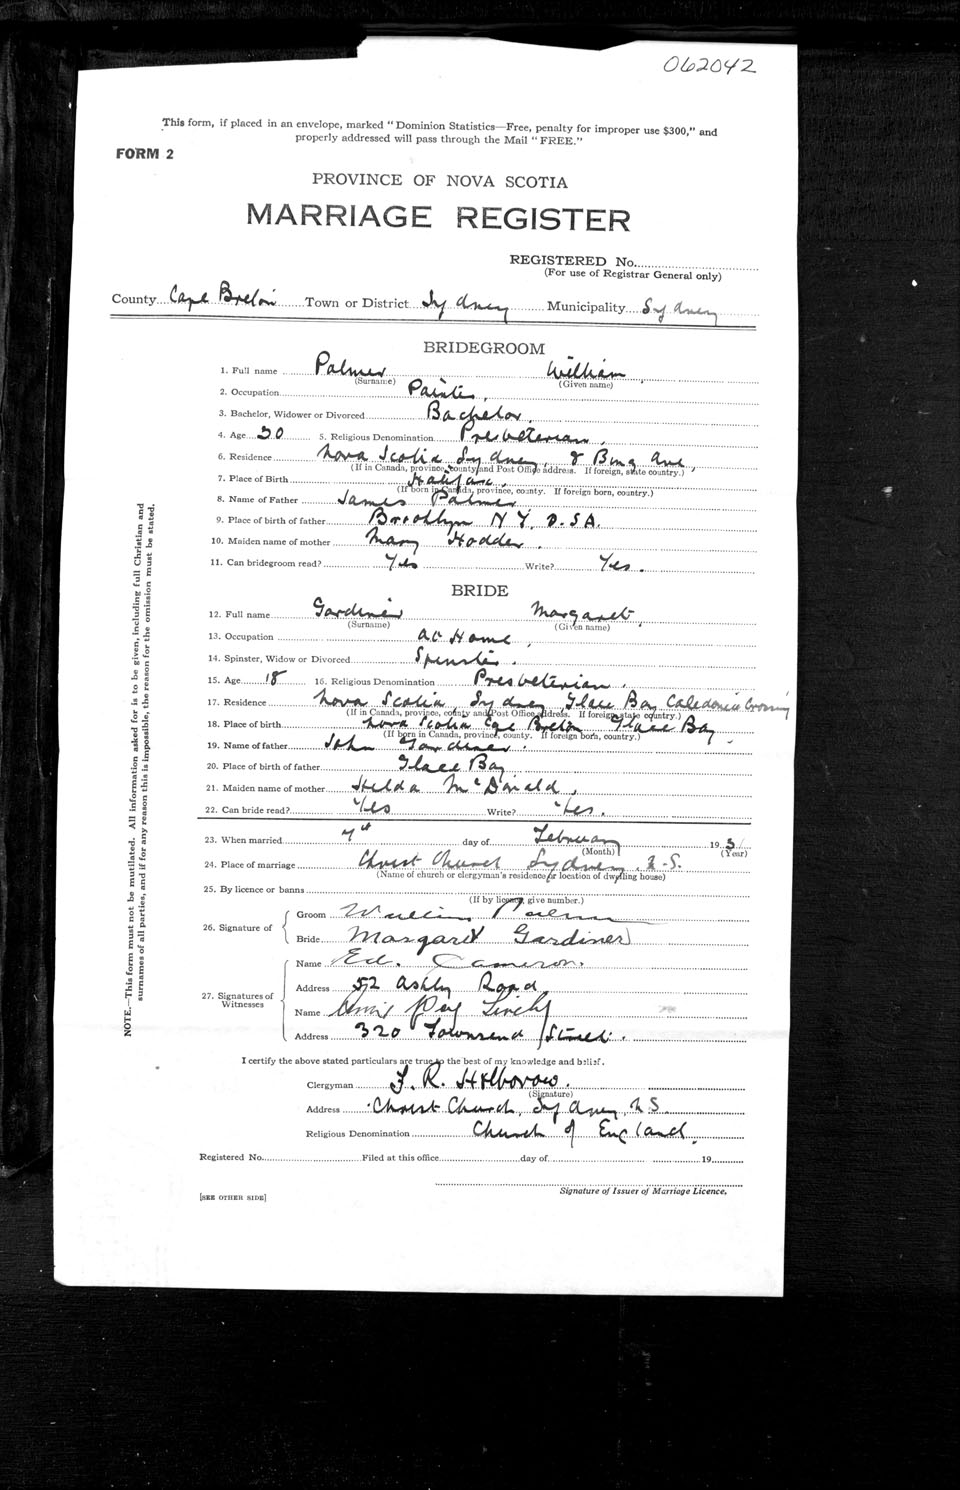 062042
This form, if placed in an envelope, marked "Dominion Statistics—Free, penalty for improper use $300," and
properly addressed will pass through the Mail "FREE."
FORM 2
PROVINCE OF NOVA SCOTIA
MARRIAGE REGISTER
REGISTERED No.
(For use of Registrar General only)
County Cape Breton Town or District Sydney Municipality Sydney
BRIDEGROOM
1. Full name Palmer William
(Surname) (Given name)
2. Occupation Painter
3. Bachelor, Widower or Divorced Bachelor
4. Age 30 5. Religious Denomination Presbeterian
6. Residence Nova Scotia Sydney, 8 Bing Ave,
(If in Canada, province, county and Post Office address. If foreign, state country.)
7. Place of Birth Halifax
(If born in Canada, province, county. If foreign born, country.)
8. Name of Father James Palmer
9. Place of birth of father Brooklyn N.Y. U.S.A.
10. Maiden name of mother Mary Hodder
11. Can bridegroom read? Yes Write? Yes.
BRIDE
12. Full name Gardiner Margaret
(Surname) (Given name)
13. Occupation at Home
14. Spinster, Widow or Divorced Spinster
15. Age 18 16. Religious Denomination Presbeterian
17. Residence Nova Scotia, Sydney, Glace Bay Caledonia Crossing
(If in Canada, province, county and Post Office address. If foreign state country.)
18. Place of birth Nova Scotia Cape Breton Glace Bay
(If born in Canada, province, county. If foreign born, country.)
19. Name of father John Gardiner
20. Place of birth of father Glace Bay
21. Maiden name of mother Hilda McDonald
22. Can bride read? Yes Write? Yes.
23. When married 7th day of February 193
(Month) (Year)
24. Place of marriage Christ Church Sydney N.S.
(Name of church or clergyman's residence or location of dwelling house)
25. By licence or banns
(If by licence, give number.)
26. Signature of Groom William Palmer
Bride Margaret Gardiner
27. Signatures of Witnesses
Name Ed. Cameron.
Address 52 Ashby Road
Name
Address 320 Townsend Street.
I certify the above stated particulars are true to the best of my knowledge and belief.
Clergyman F. R. Holborow.
(Signature)
Address Christ Church, Sydney, N.S.
Religious Denomination Church of England.
Registered No. Filed at this office day of 19
Signature of Issuer of Marriage Licence.
[SEE OTHER SIDE]
NOTE.—This form must not be mutilated. All information asked for is to be given, including full Christian and
surnames of all parties, and if for any reason this is impossible, the reason for the omission must be stated.